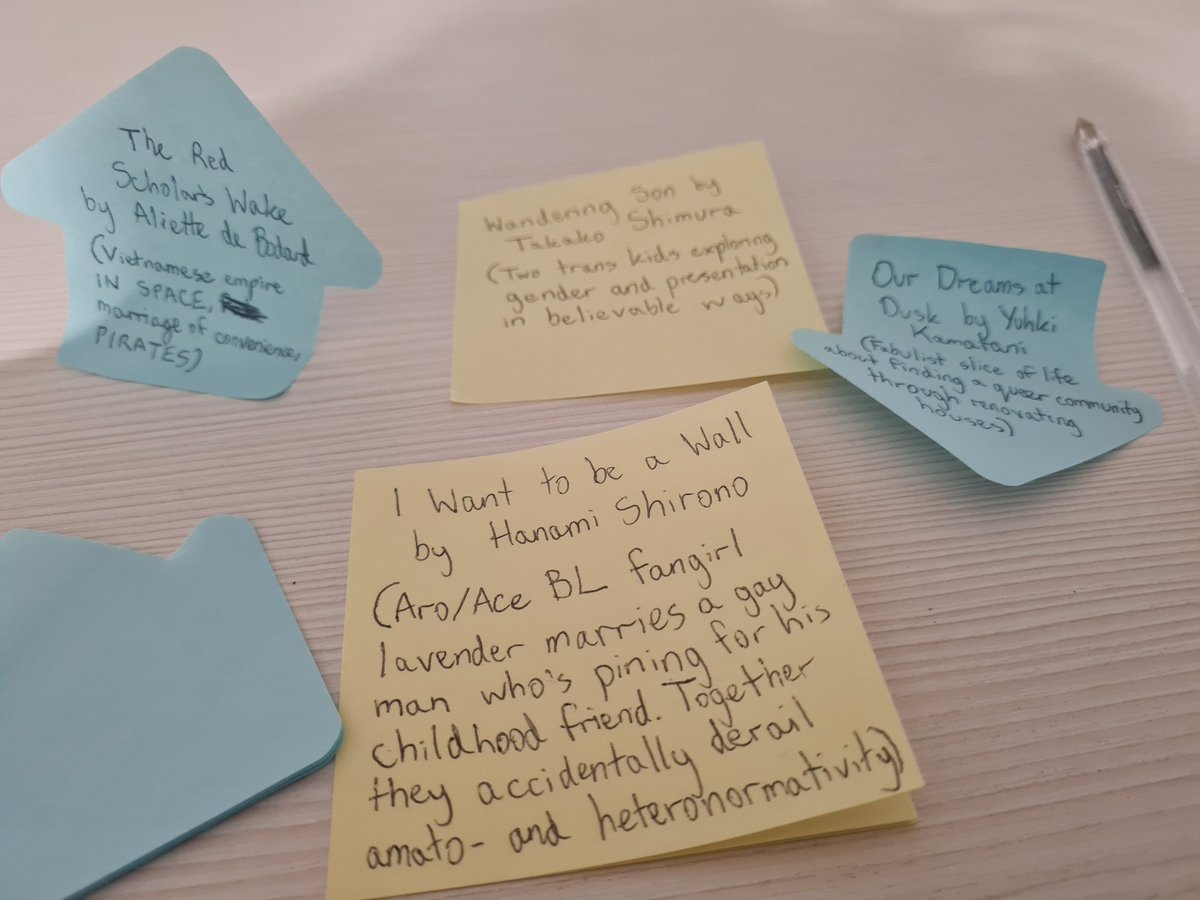 The Red
Scholar's Wake
by Aliette de Bodard
(Vietnamese empire
IN SPACE,
marriage of convenience,
PIRATES)
Wandering Son by
Takako Shimura
(Two trans kids exploring
gender and presentation
in believable ways)
Our Dreams at
Dusk by Yuhki
Kamatani
(Fabulist slice of life
about finding a queer community
through renovating
houses)
I Want to be a Wall
by Hanami Shirono
(Aro/Ace BL fangirl
lavender marries a gay
man who's pining for his
childhood friend. Together
they accidentally derail
amato- and heteronormativity)